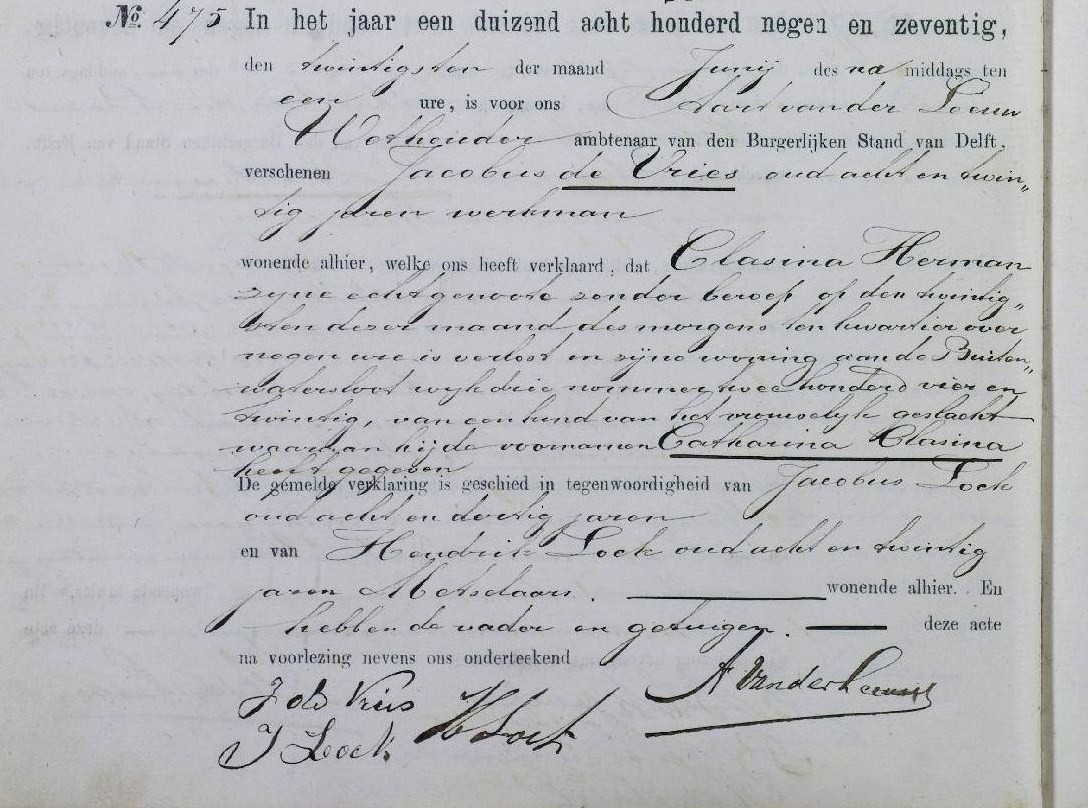 No. 475 In het jaar een duizend acht honderd negen en zeventig,
den twintigsten der maand Junij des na middags ten
een ure, is voor ons Aart van der Leeuw
Wethouder ambtenaar van den Burgerlijken Stand van Delft,
verschenen Jacobus de Vries oud acht en twin„
tig jaren werkman
wonende alhier, welke ons heeft verklaard, dat Clasina Herman
zijne echtgenoote zonder beroep op den twintig„
sten dezer maand des morgens ten kwartier over
negen ure is verlost in zijne woning aan de Buiten„
watersloot wijk drie nommer twee honderd vier en
twintig, van een kind van het vrouwelijk geslacht
waaraan hij de voornamen Catharina Clasina
heeft gegeven
De gemelde verklaring is geschied in tegenwoordigheid van Jacobus Lock
oud acht en dertig jaren
en van Hendrik Lock oud acht en twintig
jaren Metselaars. wonende alhier. En
hebben de vader en getuigen. deze acte
na voorlezing nevens ons onderteekend
J de Vries H Lock A van der Leeuw
J Lock